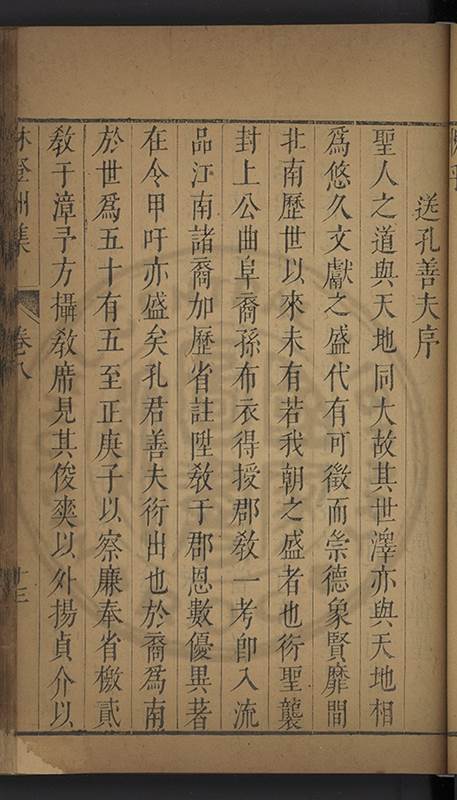 送孔善夫序
聖人之道與天地同大故其世澤亦與天地相
爲悠久文獻之盛代有可徵而崇德象賢靡間
北南歷世以來未有若我朝之盛者也衍聖襲
封上公曲阜裔孫布衣得授郡敎一考卽入流
品江南諸裔加歷省註陞敎于郡恩數優異著
在令甲吁亦盛矣孔君善夫衍出也於裔爲南
於世爲五十有五至正庚子以察廉奉省檄貳
敎于漳予方攝敎席見其俊爽以外揚貞介以
林登州集
卷八
十三